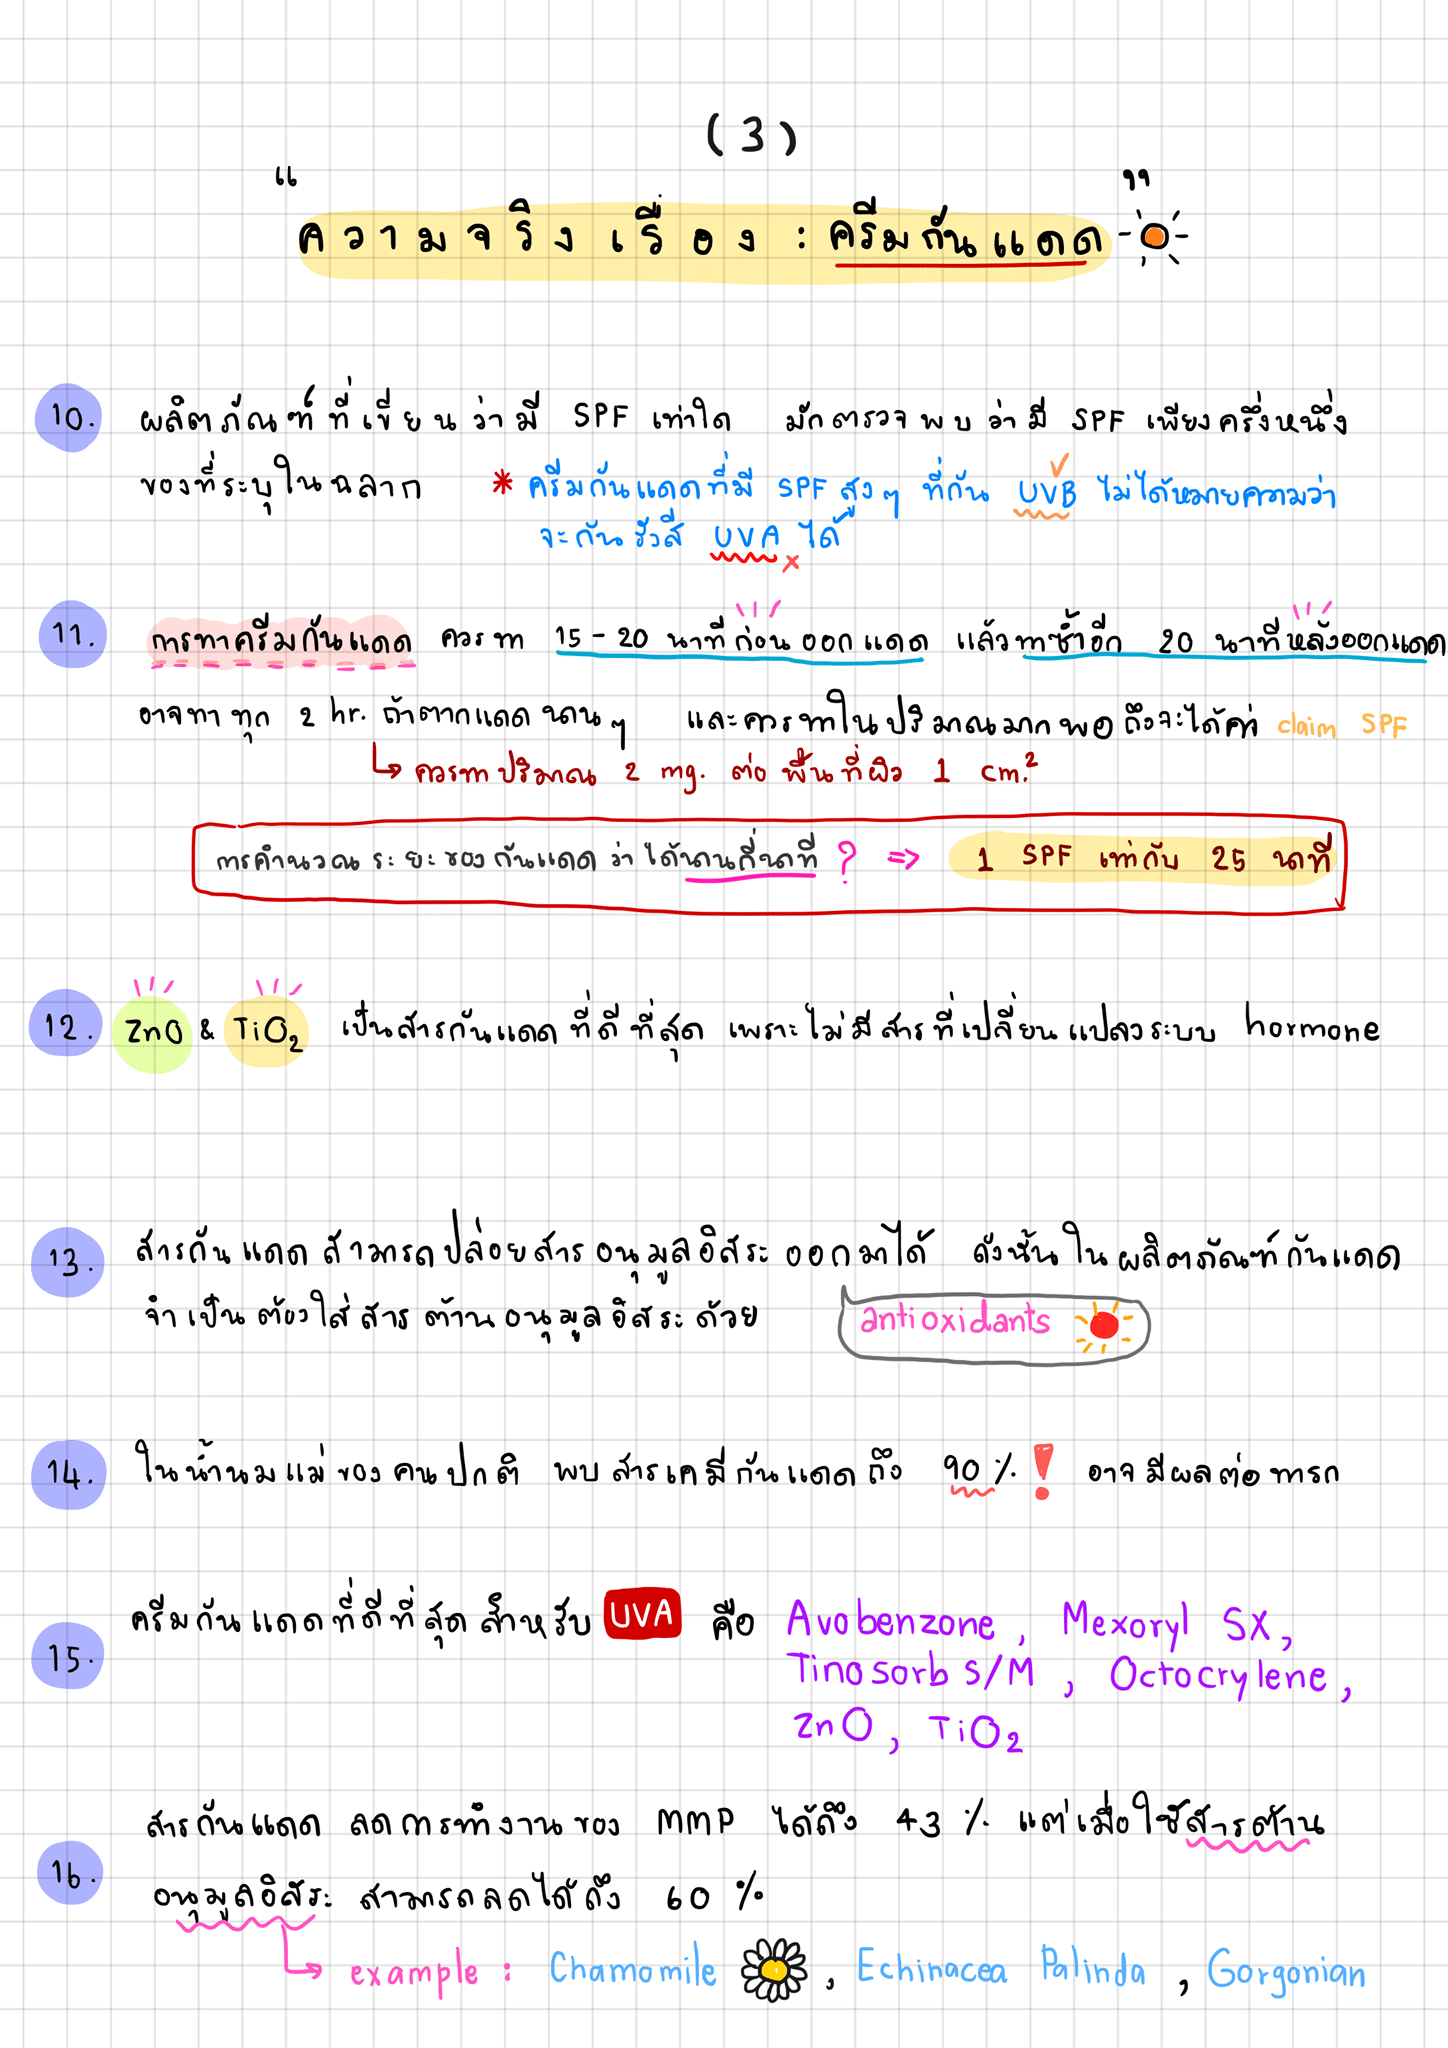 (3)
"ความจริงเรื่อง : ครีมกันแดด"
10. ผลิตภัณฑ์ที่เขียนว่ามี SPF เท่าใด มักตรวจพบว่ามี SPF เพียงครึ่งหนึ่ง
ของที่ระบุในฉลาก * ครีมกันแดดที่มี SPF สูงๆ ที่กัน UVB ไม่ได้หมายความว่า
จะกันรังสี UVA ได้
11. การทาครีมกันแดด ควรทา 15-20 นาทีก่อนออกแดด แล้วทาซ้ำอีก 20 นาทีหลังออกแดด
อาจทาทุก 2 hr. ถ้าตากแดดนานๆ และควรทาในปริมาณมากพอ ถึงจะได้ค่า claim SPF
↳ ควรทาปริมาณ 2 mg. ต่อ พื้นที่ผิว 1 cm.²
การคำนวณระยะของกันแดดว่าได้นานกี่นาที ? => 1 SPF เท่ากับ 25 นาที
12. ZnO & TiO₂ เป็นสารกันแดดที่ดีที่สุด เพราะไม่มีสารที่เปลี่ยนแปลงระบบ hormone
13. สารกันแดดสามารถปล่อยสารอนุมูลอิสระออกมาได้ ดังนั้นในผลิตภัณฑ์กันแดด
จำเป็นต้องใส่สารต้านอนุมูลอิสระด้วย antioxidants
14. ในน้ำนมแม่ของคนปกติ พบสารเคมีกันแดดถึง 90 % ! อาจมีผลต่อทารก
15. ครีมกันแดดที่ดีที่สุดสำหรับ UVA คือ Avobenzone, Mexoryl SX,
Tinosorb S/M, Octocrylene,
ZnO, TiO₂
16. สารกันแดด ลดการทำงานของ MMP ได้ถึง 43 % แต่เมื่อใช้สารต้าน
อนุมูลอิสระ สามารถลดได้ถึง 60 %
↳ example : Chamomile, Echinacea Palinda, Gorgonian